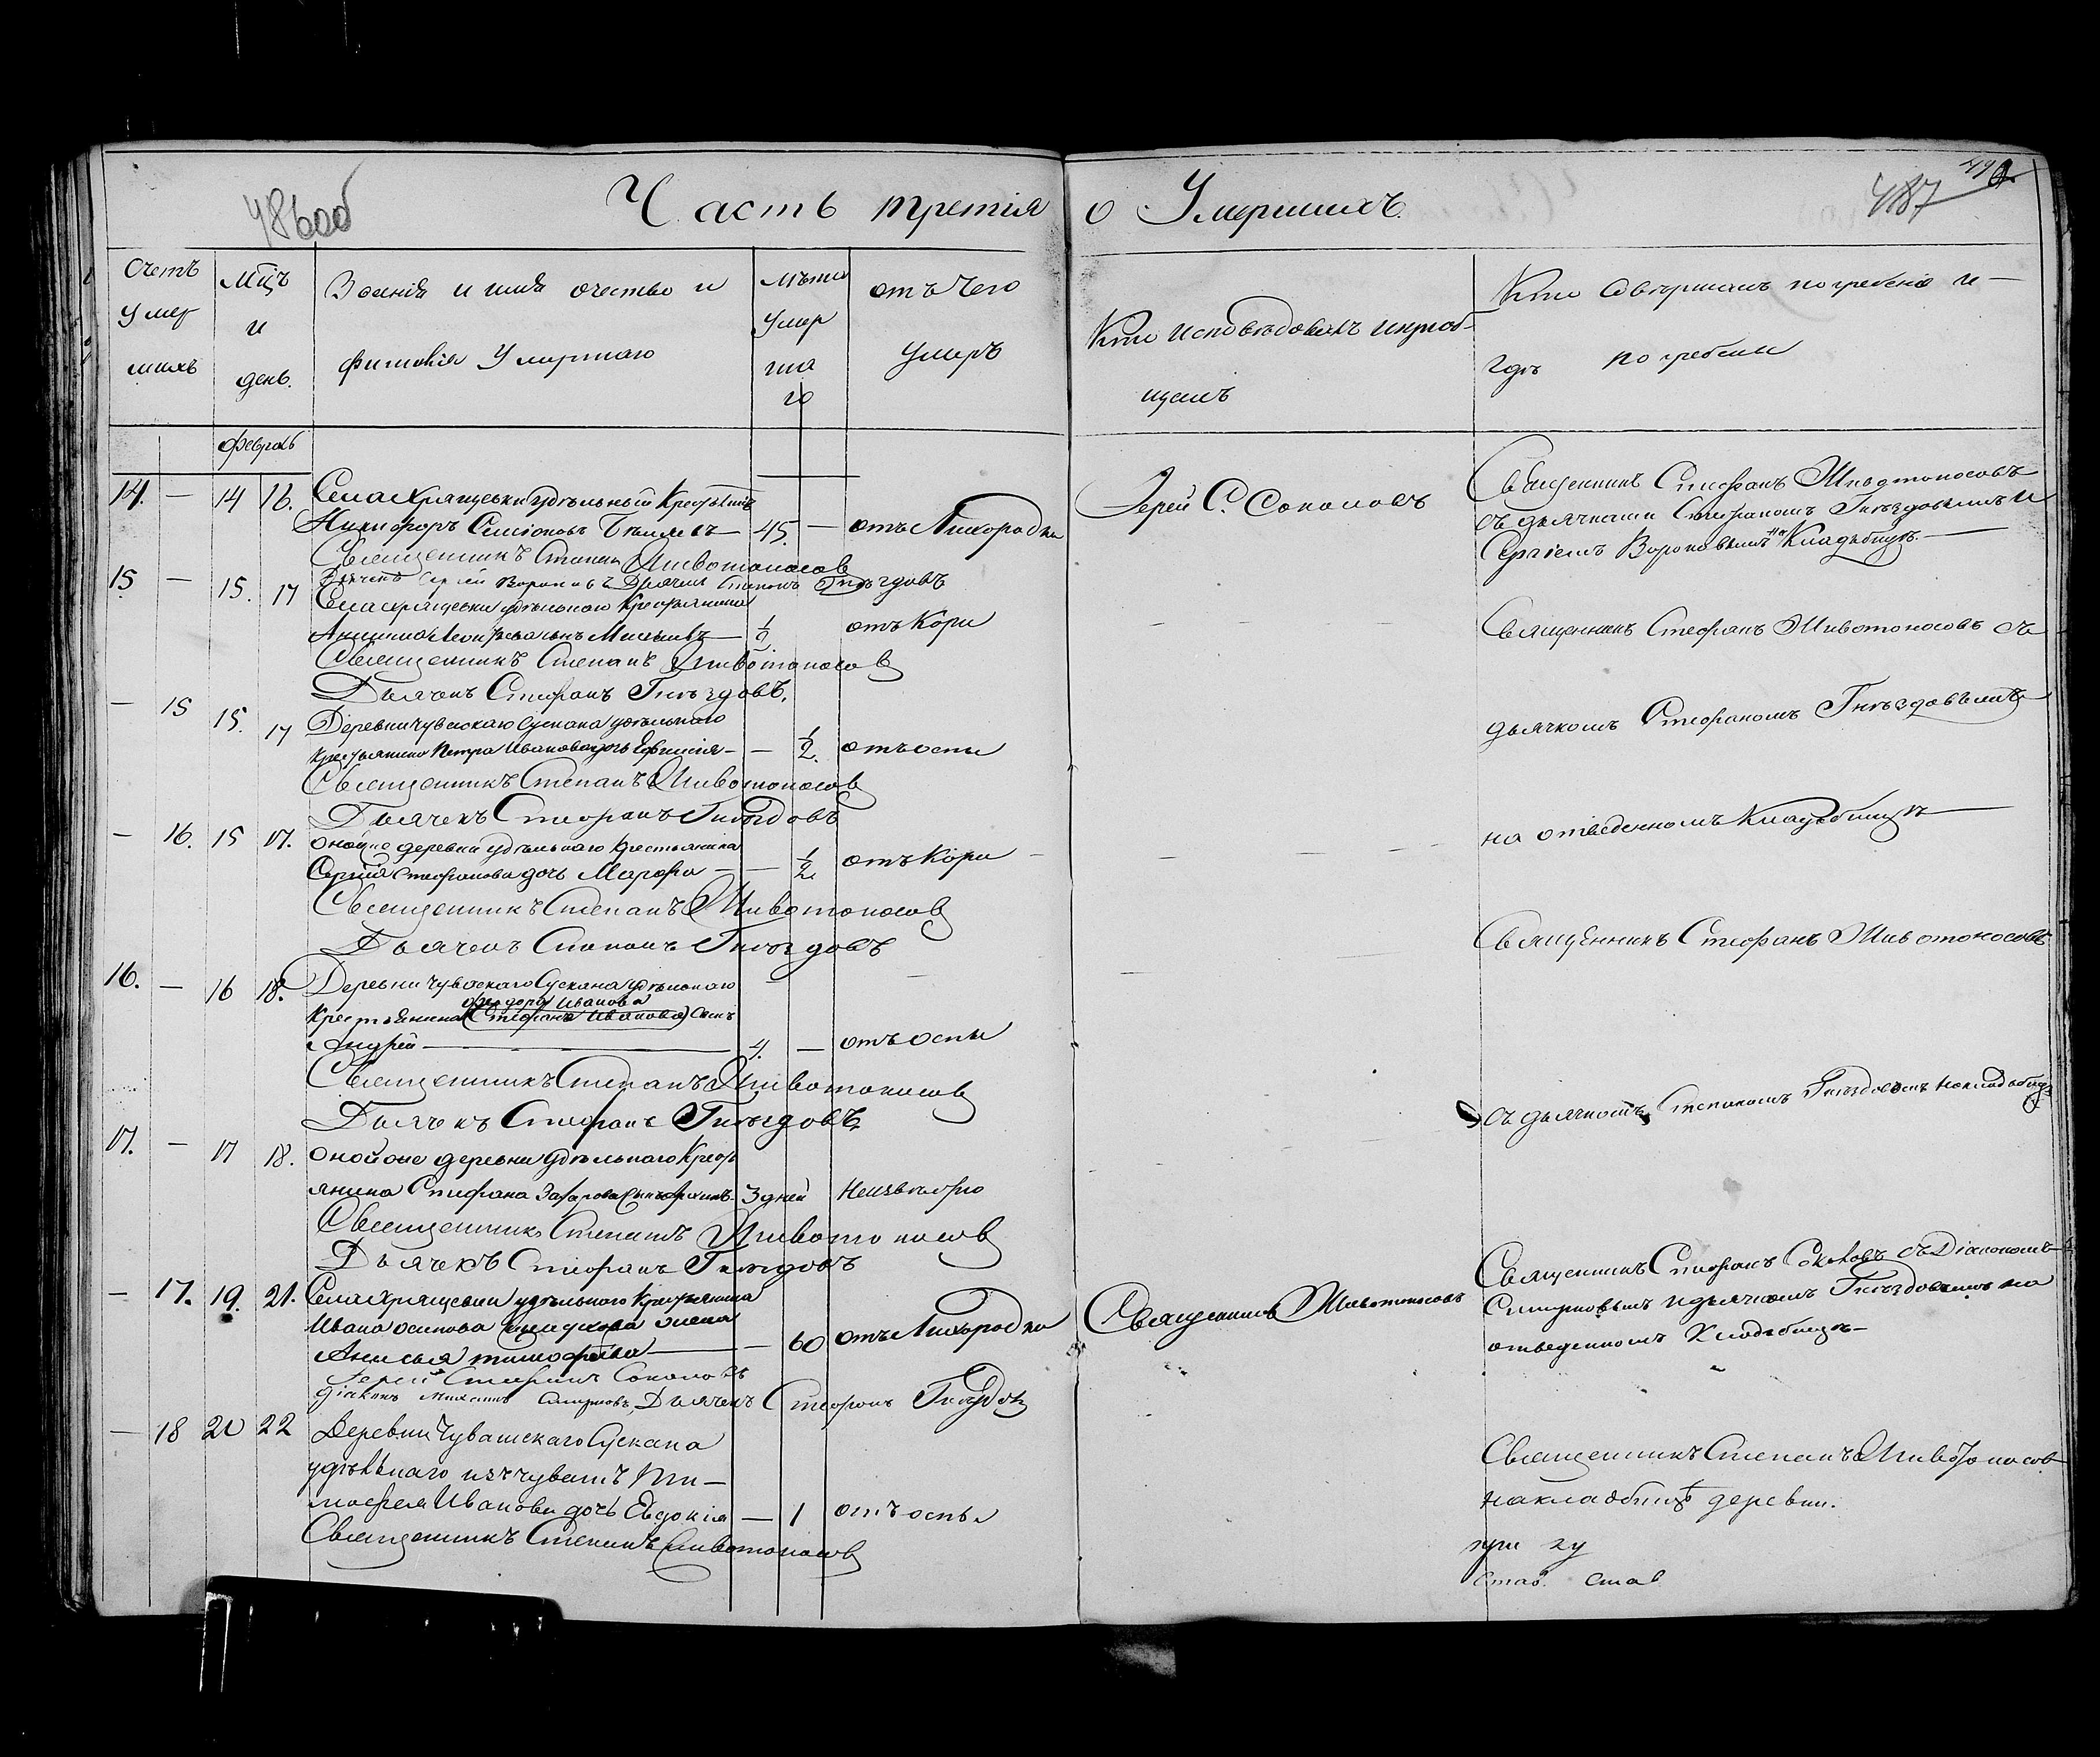 486об
Часть третія о Умершихъ.
487
Счетъ умер шихъ
Мцъ и день.
Званія и имя очество и фамилія Умершаго
Лѣта Умер ша го
отъ Чего Умеръ
Кто исповѣдовалъ и
щалъ
Кто Совершалъ погребеніе и
гдѣ погребены
Февраль
14. — 14 16. Села Хрящевки удѣльный Крестьянинъ
Никифоръ Семіоновъ — 45. — отъ Лихорадки
Іерей С. Соколовъ
Священникъ Стефанъ Животоносовъ
съ дьячками Стефаномъ Гнѣздовымъ и
Сергіемъ Вороновымъ на Кладбищѣ. —
Священникъ Степанъ Животоносов
Дьячекъ Сергей Вороновъ Дьячекъ Степанъ Гнѣздовъ
15 — 15. 17 Села Хрящевки удѣльнаго Крестьянина
— 1/2 отъ Кори
Священникъ Стефанъ Животоносовъ съ
Священникъ Степанъ Животоносов
Дьячекъ Стефанъ Гнѣздовъ.
— 15 15. 17 Деревни Чуваскаго Сускана удѣльнаго
Крестьянина Петра Иванова дочь Ефимія — — 1/2. отъ оспы
дьячкомъ Стефаномъ Гнѣздовымъ
Священникъ Степанъ Животоносов
Дьячекъ Стефанъ Гнѣздовъ
— 16. 15 17. оной же деревни удѣльнаго Крестьянина
Сергія Стефанова дочь Марфа — — 1/2. отъ Кори
на отведенномъ Кладбищѣ
Священникъ Степанъ Животоносов
Дьячекъ Степанъ Гнѣздовъ
Священникъ Стефанъ Животоносовъ
16. — 16 18. Деревни Чуваскаго Сускана удѣльнаго
Феодора Иванова
Крестьянина (Стефана Иванова) Сынъ
Андрей — 4. — отъ оспы
Священникъ Степанъ Животоносов
съ дьячкомъ Степаномъ Гнѣздовымъ на кладбищѣ
Дьячекъ Стефанъ Гнѣздовъ
17. — 17 18. оной же деревни удѣльнаго Крест
янина Стефана Захарова Сынъ 3 дней Неизвѣстно
Священникъ Степанъ Животоносов
Дьячекъ Стефанъ Гнѣздовъ
— 17. 19. 21. Села Хрящевки удѣльнаго Крестьянина
Ивана осипова жена
Анисья тимофѣева — — 60 отъ Лихорадки
Священникъ Животоносовъ
Священникъ Стефанъ Соколовъ съ Діакономъ
Смирновымъ и дьячкомъ Гнѣздовымъ на
отведенномъ Кладбищѣ —
Іерей Стефанъ Соколовъ
Діаконъ Михаилъ Смирновъ, Дьячекъ Стефанъ Гнѣздов
— 18 20 22 Деревни Чувашскаго Сускана
удѣльнаго изъ чувашъ Ти—
мофея Иванова дочь Евдокія — 1 отъ оспы
Священникъ Степанъ Животоносов
на кладбищѣ деревни.
Священникъ Степанъ Животоносов
при